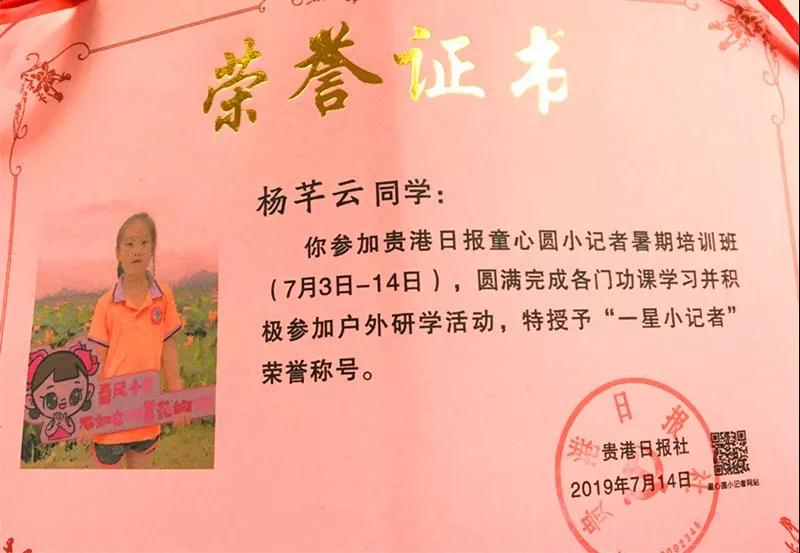 荣誉证书
杨芊云 同学：
你参加贵港日报童心圆小记者暑期培训班
（7月3日-14日），圆满完成各门功课学习并积
极参加户外研学活动，特授予“一星小记者”
荣誉称号。
春风十里
不如
贵港日报社
贵港日报社
2019年7月14日
童心圆小记者网站